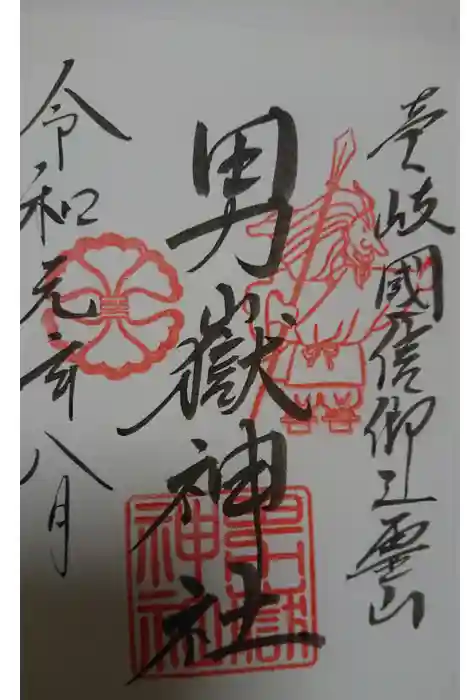 壱岐國信仰之霊山
男嶽神社
令和元年八月
男嶽
神社